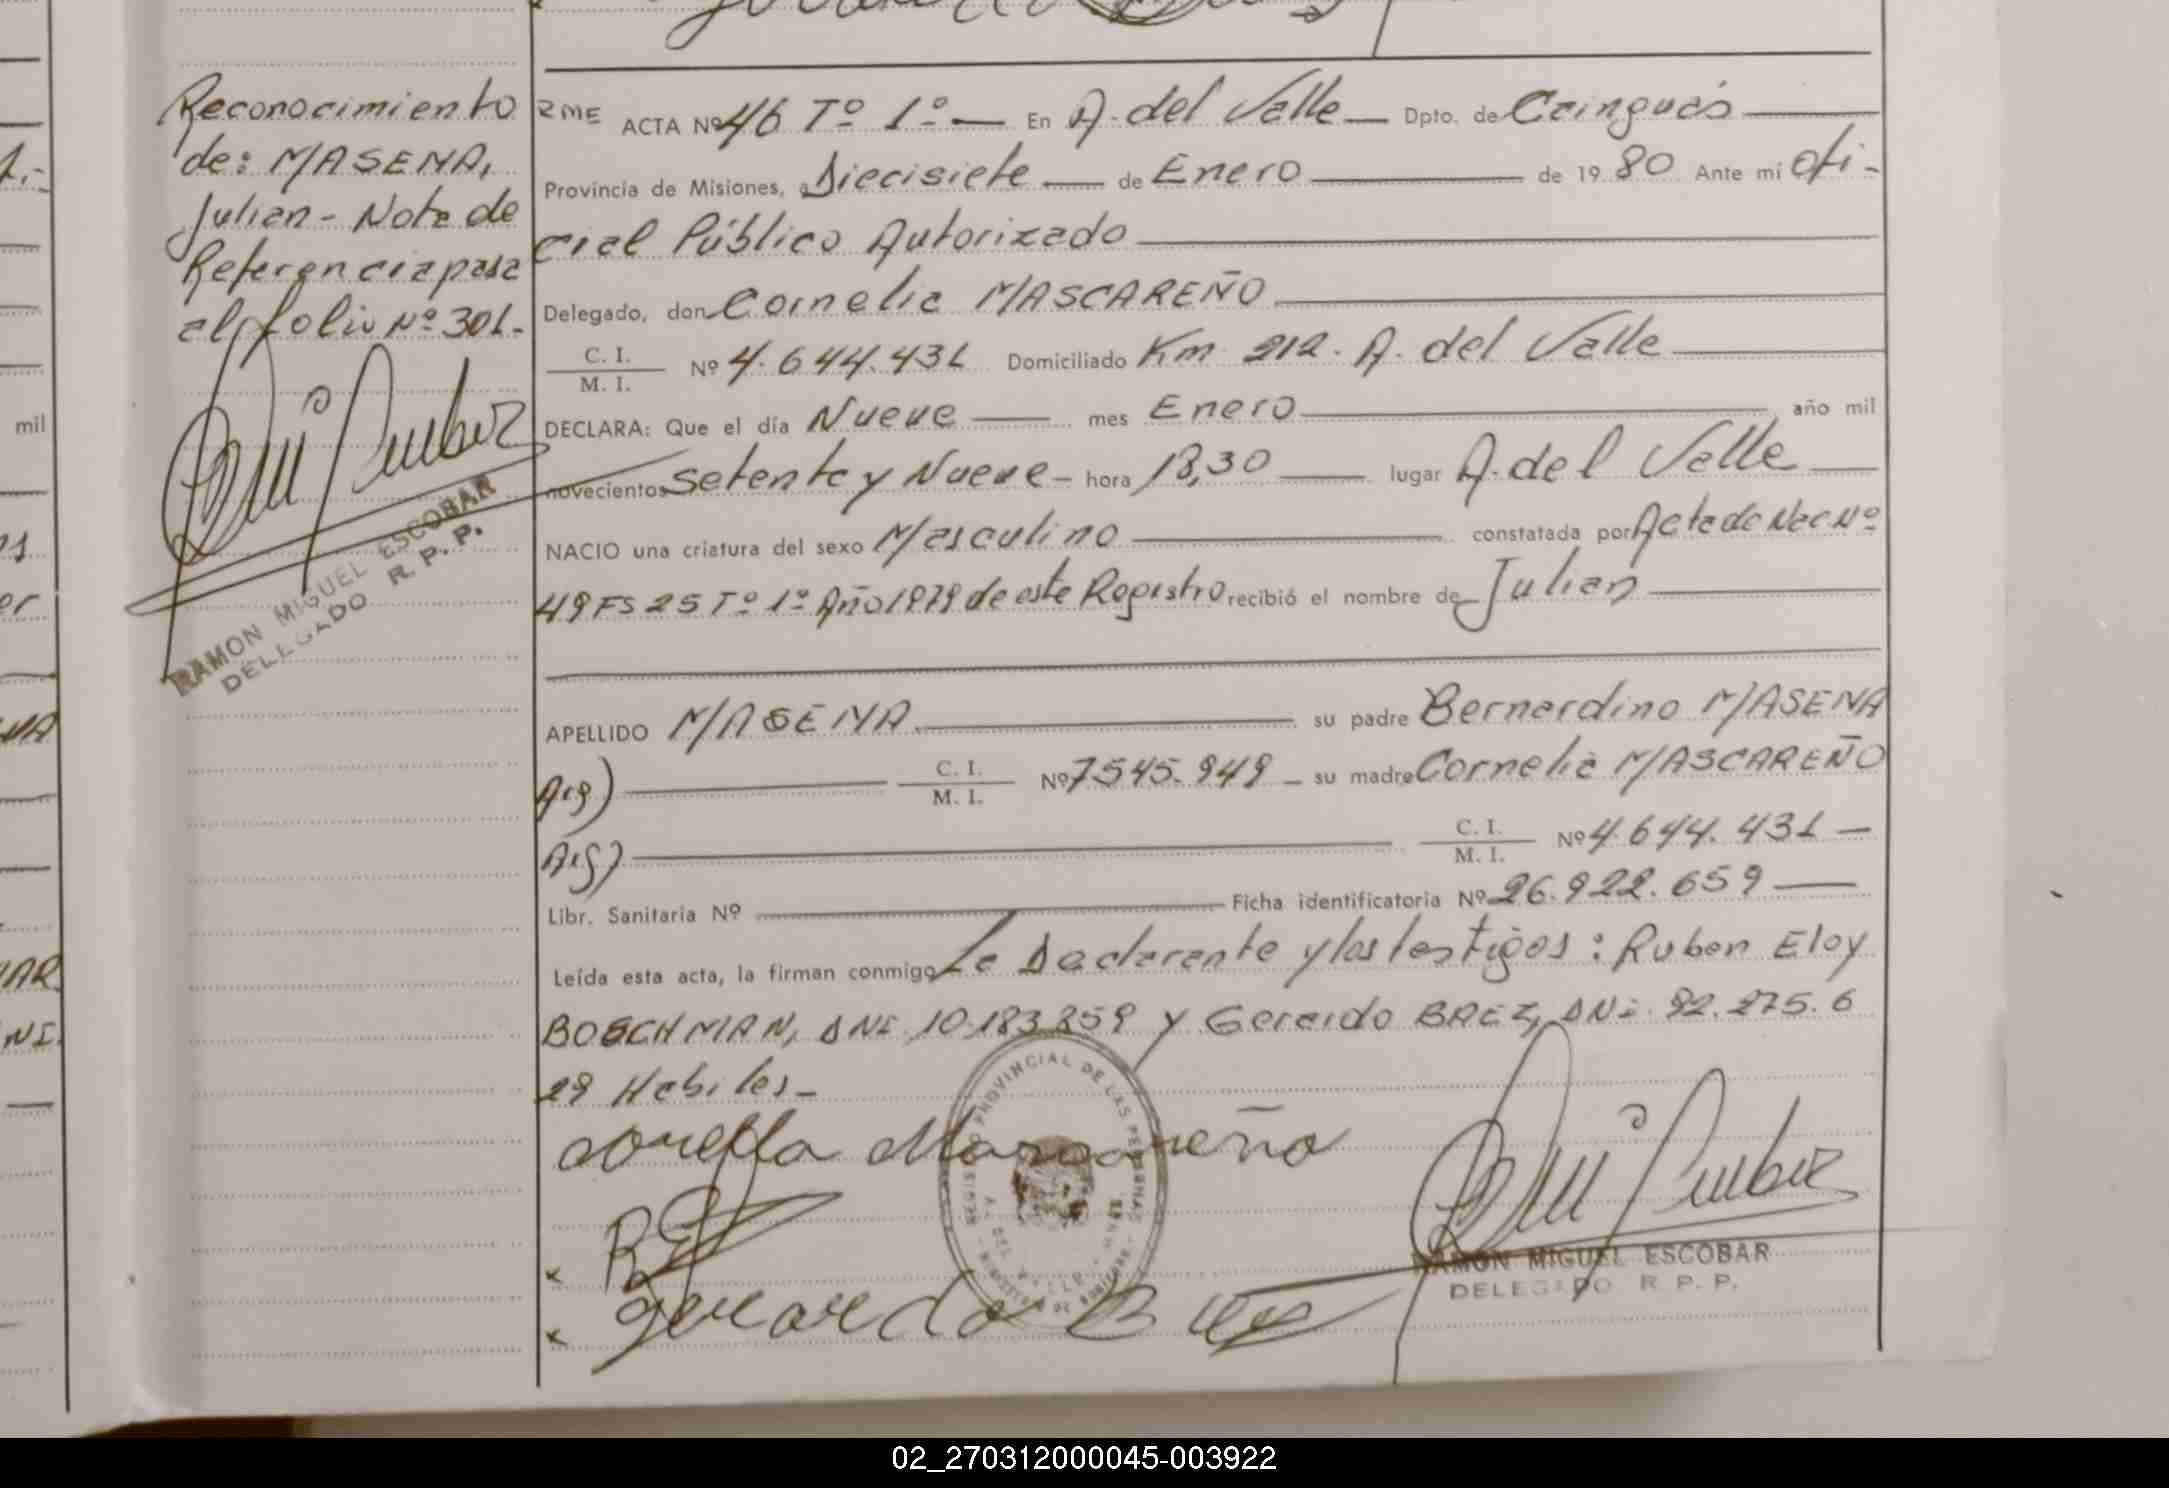 Reconocimiento
de: MASENA,
Julian - Nota de
Referencia pasa
al folio Nº 301.-
RAMON MIGUEL ESCOBAR
DELEGADO R. P. P.
ACTA Nº 46 Tº 1º — En A. del Valle — Dpto. de Cainguás
Provincia de Misiones, a Diecisiete — de Enero — de 1980 Ante mí Ofi-
cial Público Autorizado
Delegado, don Cornelia MASCAREÑO
C. I.
M. I. Nº 4.644.431 Domiciliado Km 212. A. del Valle
DECLARA: Que el día Nueve — mes Enero — año mil
novecientos Setenta y Nueve - hora 18,30 — lugar A. del Valle
NACIO una criatura del sexo Masculino — constatada por Acta de Nac Nº
49 FS 25 Tº 1º Año 1979 de este Registro recibió el nombre de Julian
APELLIDO MASENA — su padre Bernardino MASENA
Arg) — C. I.
M. I. Nº 7545.949 - su madre Cornelia MASCAREÑO
Arg) — C. I.
M. I. Nº 4.644.431 —
Libr. Sanitaria Nº — Ficha identificatoria Nº 26.922.659 —
Leída esta acta, la firman conmigo La Declarante y los testigos: Ruben Eloy
BOSCHMAN, DNI 10.183.859 y Gerardo BAEZ, DNI. 92.275.6
29 Habiles -
Cornelia Mascareño
REGISTRO PROVINCIAL DE LAS PERSONAS
x
x Gerardo Baez
RAMON MIGUEL ESCOBAR
DELEGADO R. P. P.
mil
02_270312000045-003922